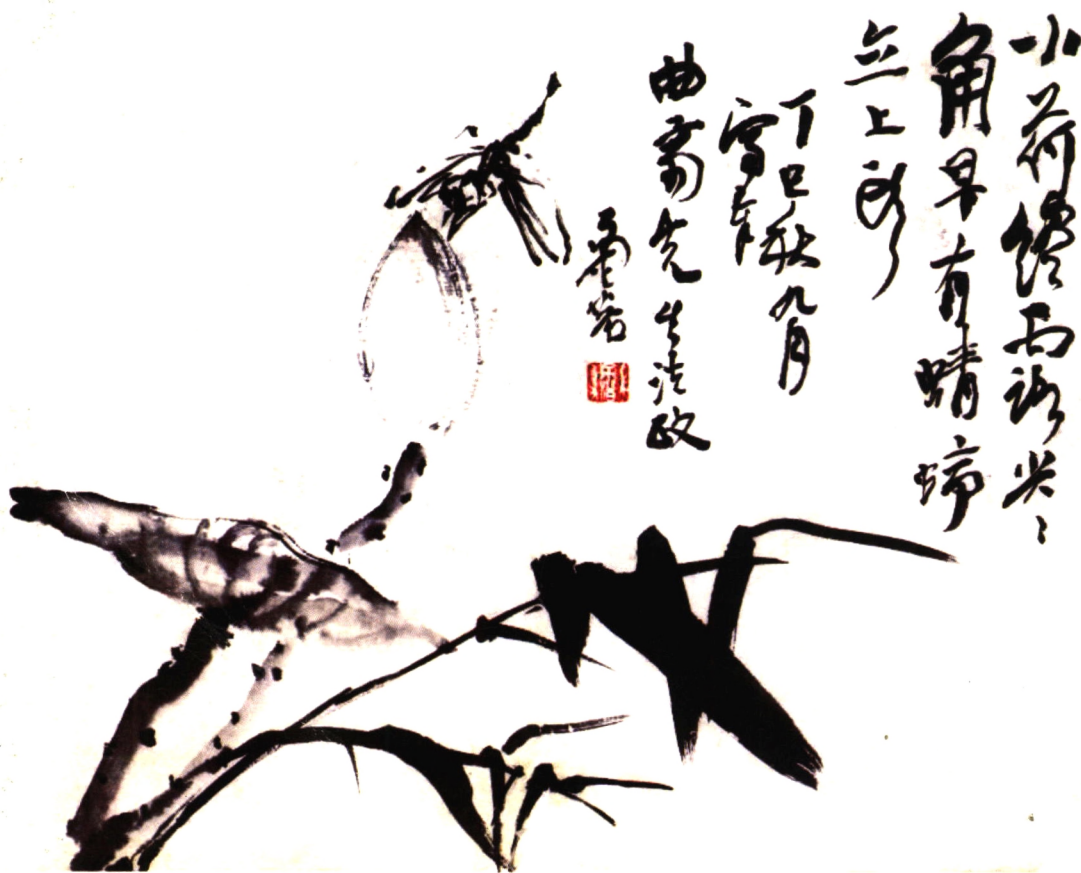 小荷纔露尖〻
角早有蜻蜓
立上头
丁巳秋九月
寫奉
曲斋先生法政